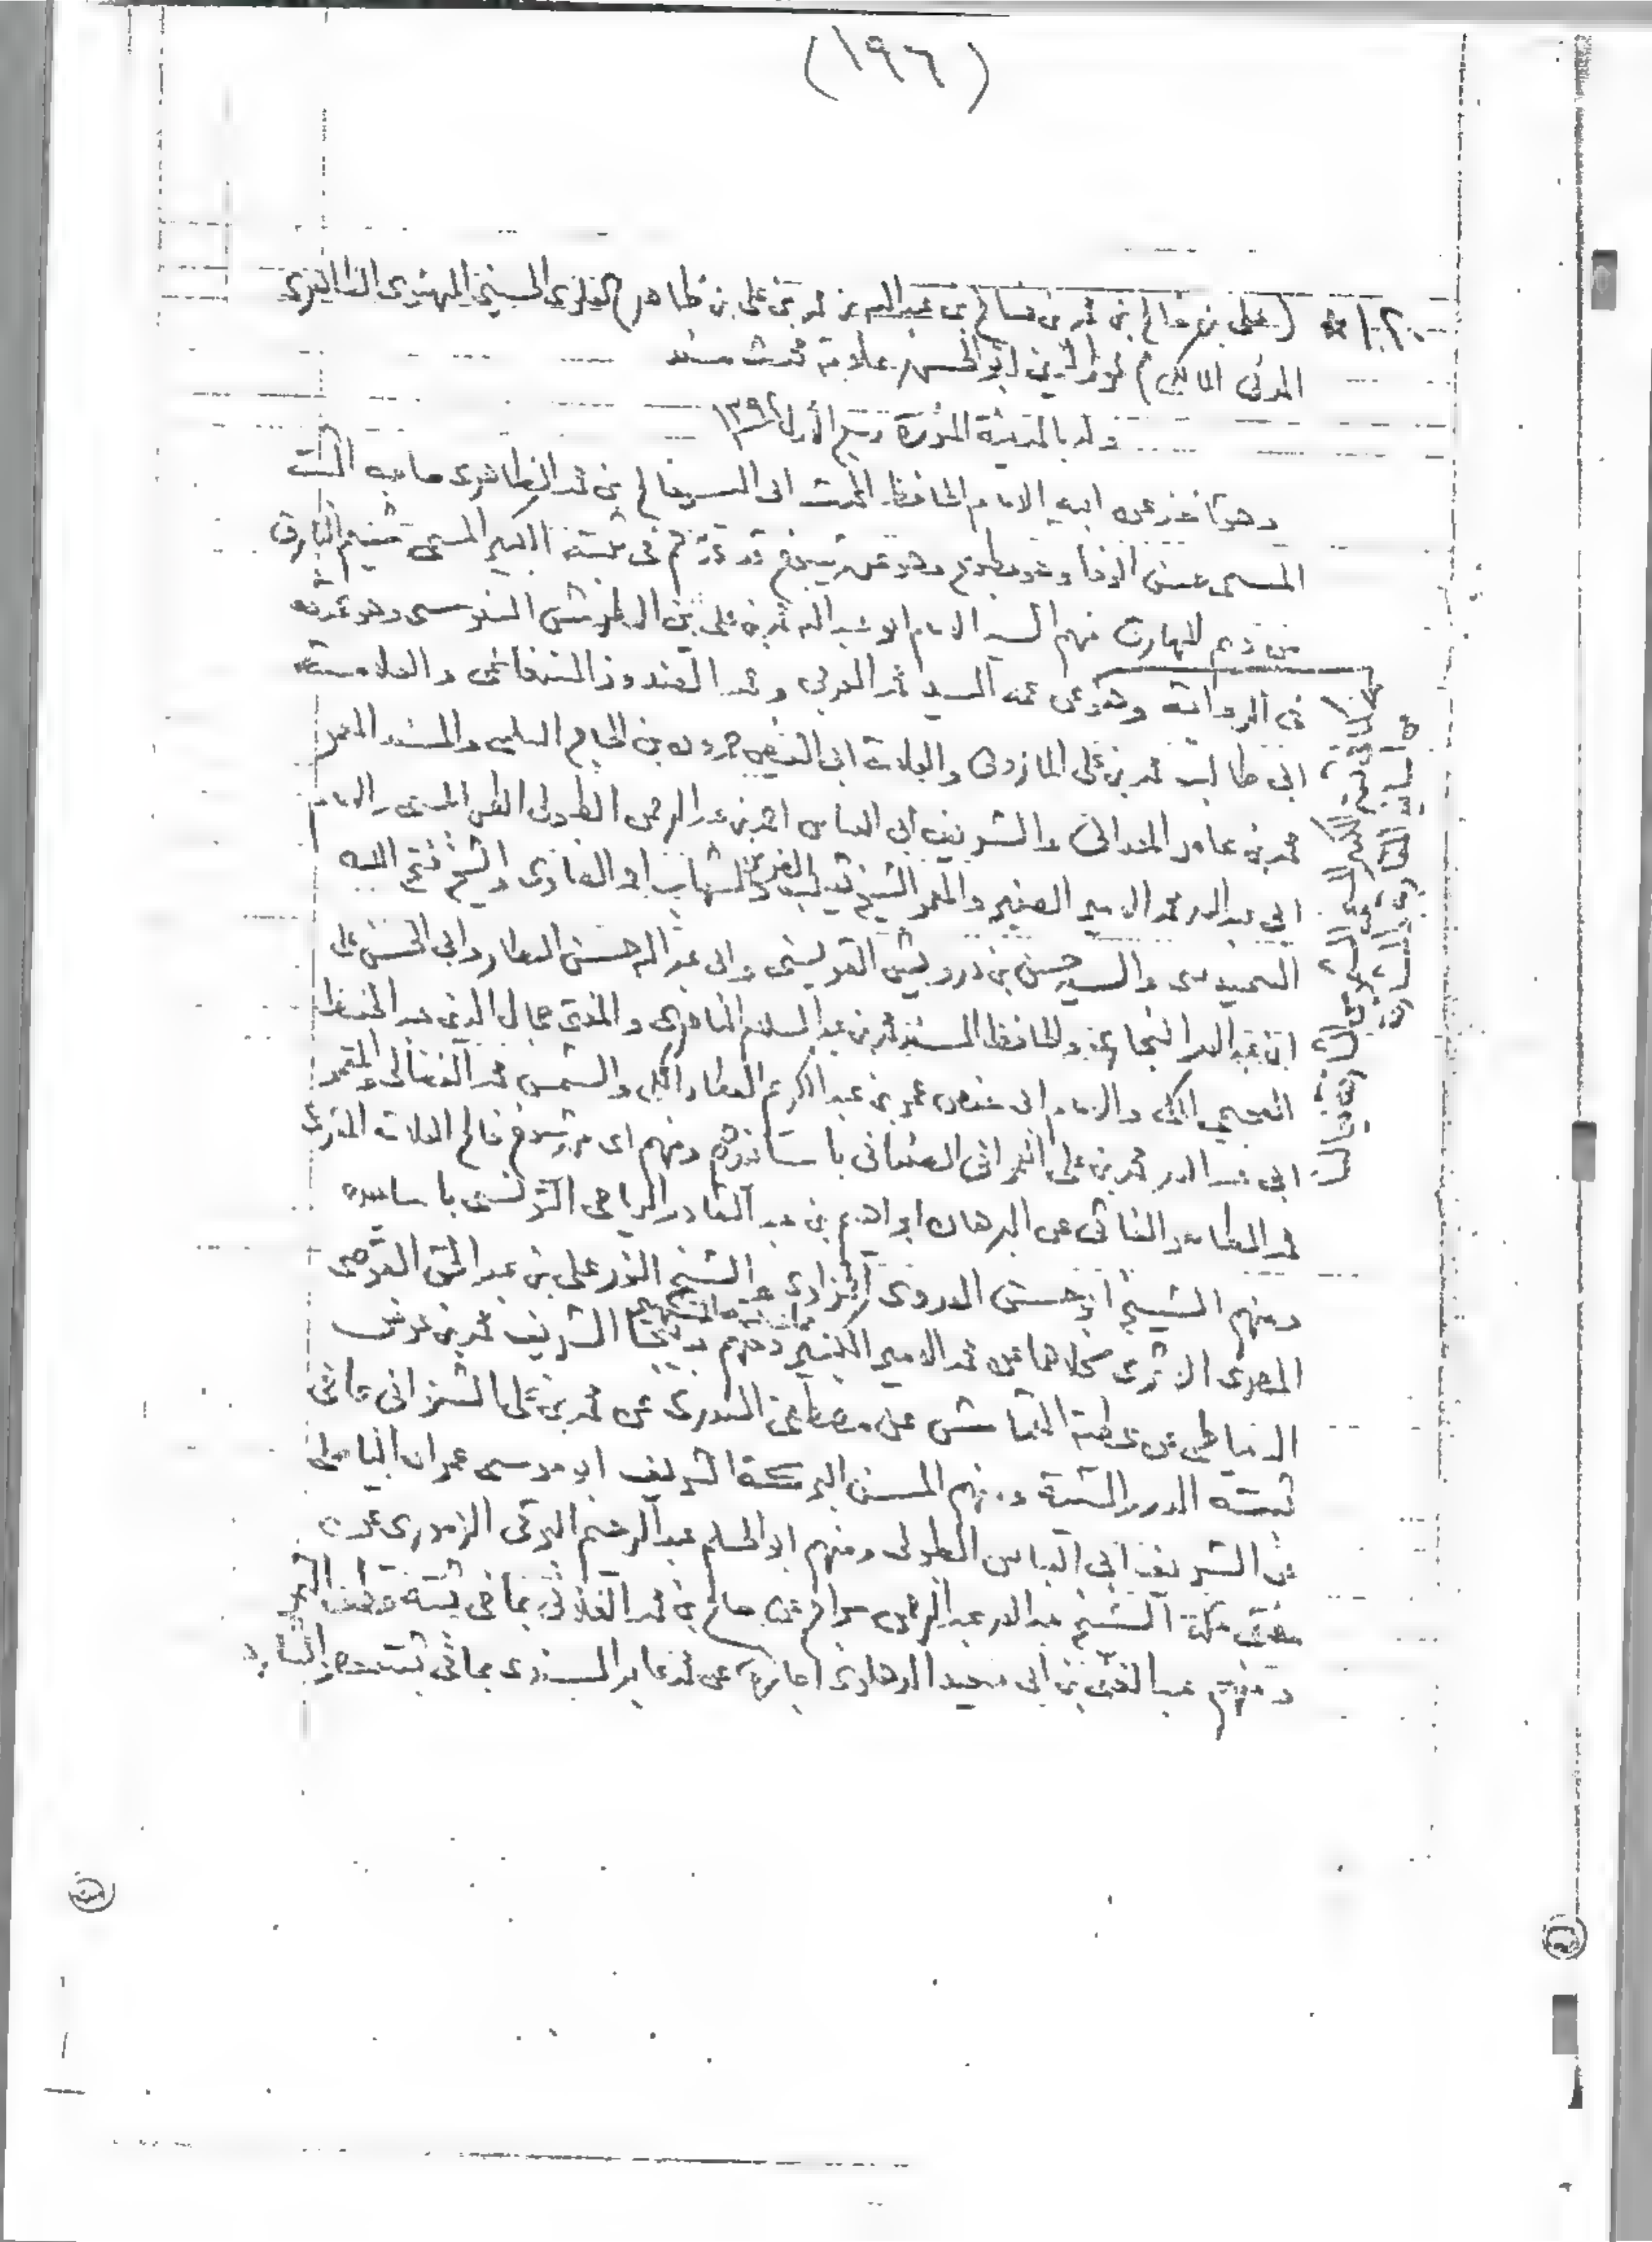 (١٩٦)
١٠٢٠ * (علي بن فالح بن محمد بن فالح بن عبدالله بن محمد بن علي بن ظاهر) الحسيني المهنوي الظاهري
المدني المالكي) نور الدين أبو الحسن علامة محدث مسند
ولد بالمدينة المنورة ربيع الأول
وهو آخذ عن ابيه الامام الحافظ المحدث ابي اليسر فالح بن محمد الظاهري صاحب الثبت
المسمى حسن الوفا وهو مطبوع وهو عن شيوخ قد ترجم في ثبته الكبير المسمى شيم البارق
من ديم المهارق منهم السيد الامام ابو عبد الله محمد بن علي بن السنوسي وهو عمدته
في الرواية وهو عن السيد محمد العربي ومحمد القندوز المستغانمي والعلامة
ابي طالب محمد بن علي المازوني والعلامة ابي الفيض حمدون بن الحاج السلمي والمسند المعمر
محمد بن عامر المعداني والشريف ابي العباس احمد بن عبد الرحمن الطبولي الطرابلسي والامام
ابي عبد الله محمد الامير الصغير والمعمر الشيخ ثعيلب الضرير والشهاب احمد الصاوي والشيخ فتح الله
السميديسي والسيد حسن بن درويش القويسني وابي عبد الله حسن العطار وابي الحسن علي
ابن عبد الله النجاري والحافظ المسند محمد بن عبد السلام الناصري والمفتي جمال الدين عبد الحفيظ
العجيمي المكي والامام ابي حفص عمر بن عبد الكريم العطار المكي والشمس محمد الفضالي والمعمر
ابي عبد الله محمد بن علي العمراني الصنعاني باسانيدهم ومنهم اي من شيوخ فالح العلامة المقري
محمد الطاهر الغاتي عن البرهان ابراهيم بن عبد القادر الرياحي التونسي باسانيده
ومنهم الشيخ ابو حسن العدوي الحمزاوي والشيخ النور علي بن عبد الحق القوصي
المصري الاثري كلاهما عن محمد الامير الكبير ومنهم الشريف محمد بن عوض
الدمياطي عن عطية القماش عن مصطفى البدري عن محمد بن علي الشنواني بما في
ثبته الدرر السنية ومنهم المسن البركة الشريف ابو موسى عمران الياصلي
عن الشريف ابي العباس الطبولي ومنهم ابو الحلم عبد الرحيم البرقي الزموري عن
مفتي مكة الشيخ عبد الله عبد الرحمن سراج عن صالح بن محمد الفلاني بما في ثبته قطف الثمر
ومنهم عبد الغني بن ابي سعيد الدهلوي اجازة عن محمد عابد السندي بما في ثبته حصر الشارد